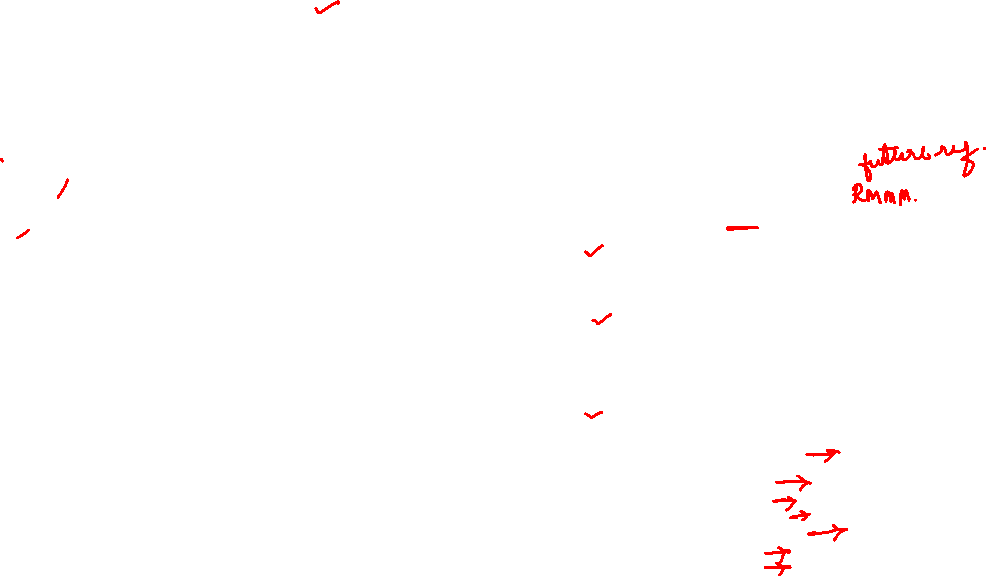 future ref.
RMMM.